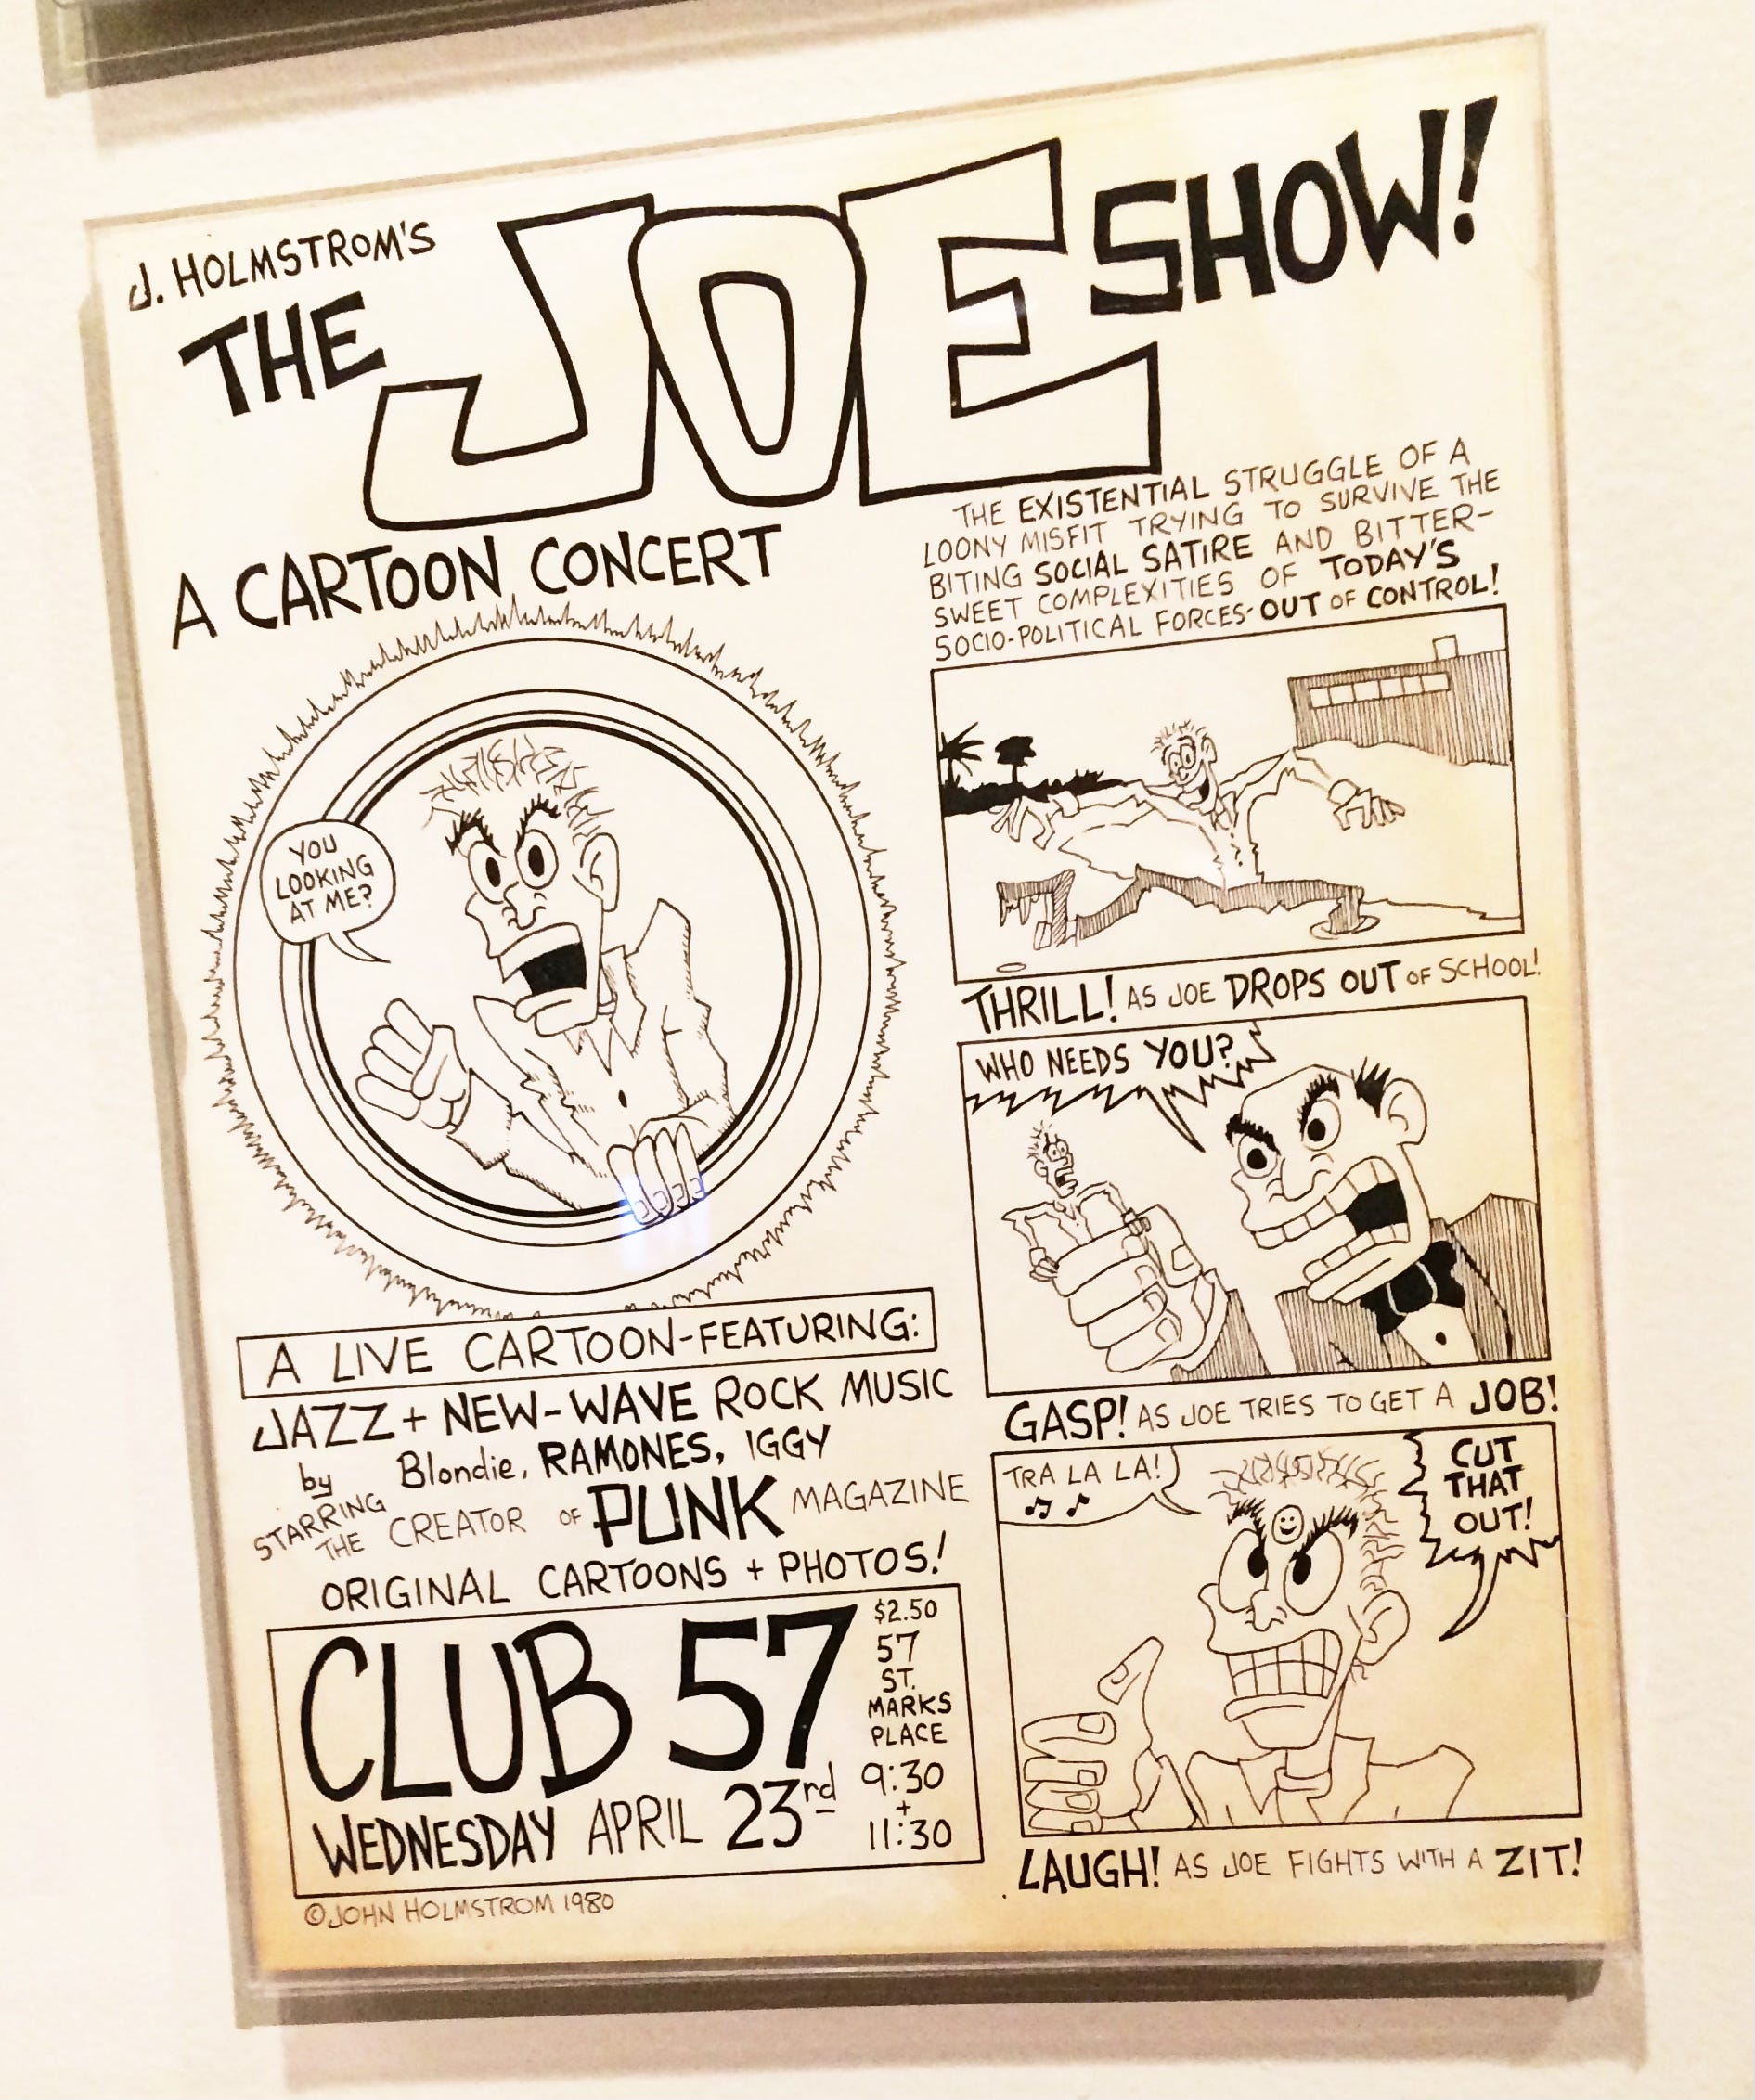 J. HOLMSTROM'S
THE JOE SHOW!
A CARTOON CONCERT
YOU
LOOKING
AT ME?
A LIVE CARTOON-FEATURING:
JAZZ + NEW-WAVE ROCK MUSIC
by Blondie, RAMONES, IGGY
STARRING
THE CREATOR OF PUNK MAGAZINE
ORIGINAL CARTOONS + PHOTOS!
CLUB 57
WEDNESDAY APRIL 23rd
$2.50
57
ST.
MARKS
PLACE
9:30
+
11:30
©JOHN HOLMSTROM 1980
THE EXISTENTIAL STRUGGLE OF A
LOONY MISFIT TRYING TO SURVIVE THE
BITING SOCIAL SATIRE AND BITTER-
SWEET COMPLEXITIES OF TODAY'S
SOCIO-POLITICAL FORCES-OUT OF CONTROL!
THRILL! AS JOE DROPS OUT OF SCHOOL!
WHO NEEDS YOU?
GASP! AS JOE TRIES TO GET A JOB!
TRA LA LA!
CUT
THAT
OUT!
LAUGH! AS JOE FIGHTS WITH A ZIT!